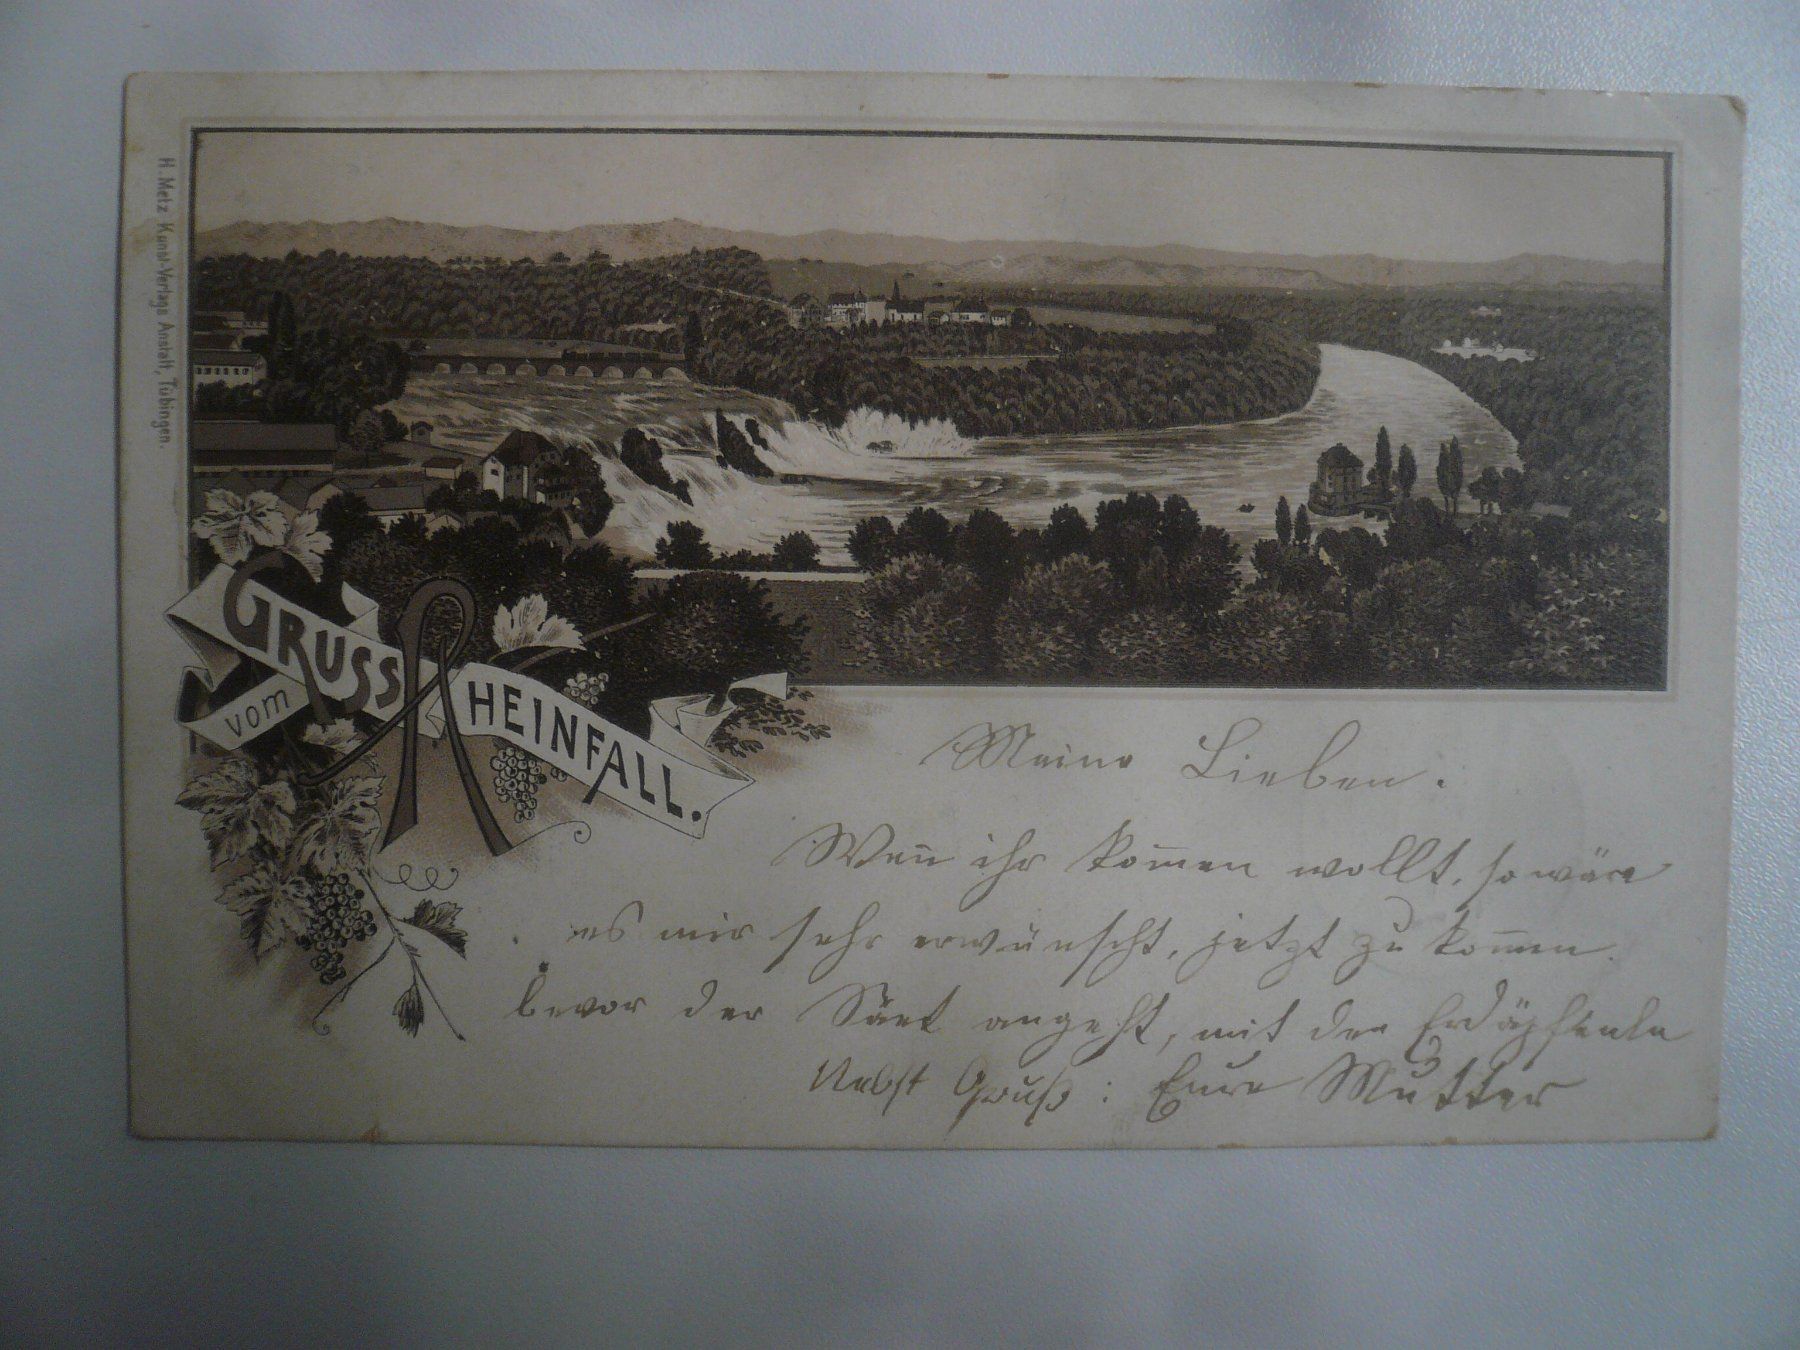 H. Metz Kunst-Verlags Anstalt, Tübingen.
GRUSS
vom RHEINFALL.
Meine Lieben.
Wen̄ ihr kom̄en wollt, so wäre
es mir sehr erwünscht, jetzt zu kom̄en.
bevor der angeht, mit den Erdäpfeln
Nebst Gruß: Eure Mutter